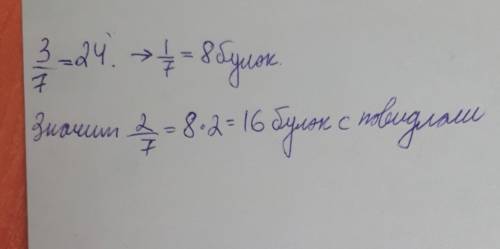 3/7 = 24. → 1/7 = 8 булок.
Значит 2/7 = 8·2 = 16 булок с повидлом